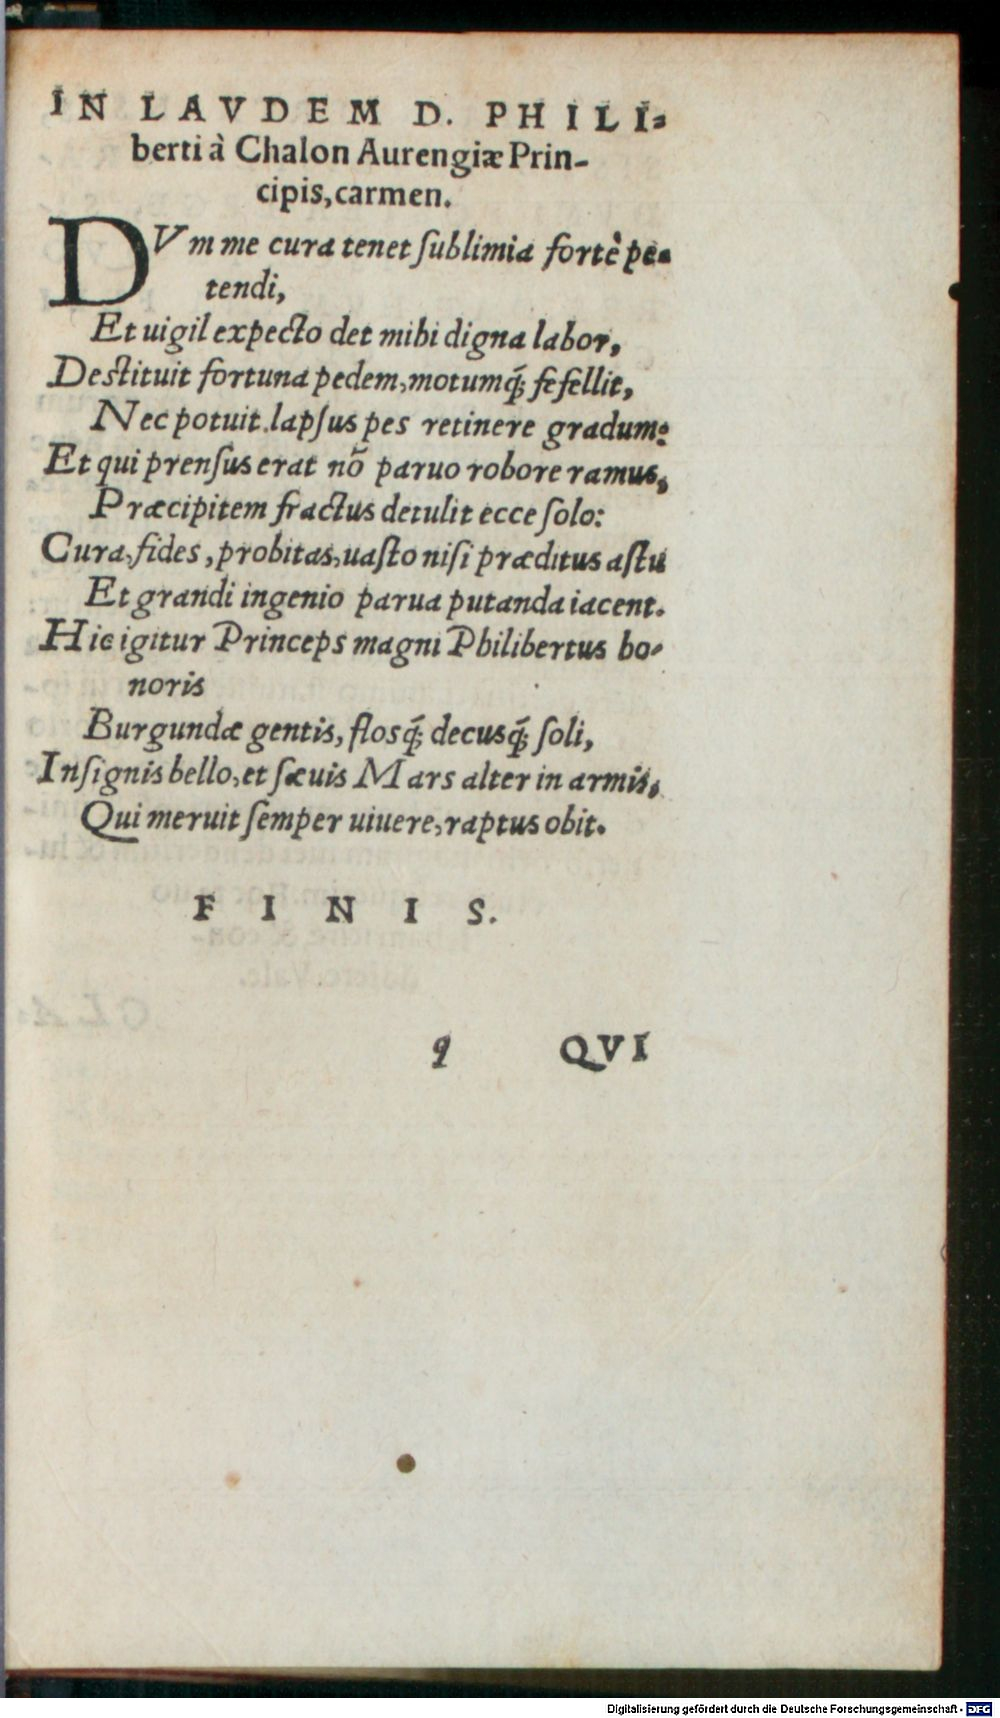 IN LAVDEM D. PHILI⸗
berti à Chalon Aurengiæ Prin-
cipis, carmen.
DVm me cura tenet ſublimia fortè pe⸗
tendi,
Et uigil expecto det mihi digna labor,
Deſtituit fortuna pedem, motumq́; fefellit,
Nec potuit lapſus pes retinere gradum:
Et qui prenſus erat nõ paruo robore ramus,
Præcipitem fractus detulit ecce ſolo:
Cura, fides, probitas, uaſto niſi præditus aſtu
Et grandi ingenio parua putanda iacent.
Hic igitur Princeps magni Philibertus ho⸗
noris
Burgundæ gentis, flosq́; decusq́; ſoli,
Inſignis bello, et ſæuis Mars alter in armis,
Qui meruit ſemper uiuere, raptus obit.
FINIS.
q QVI
Digitalisierung gefördert durch die Deutsche Forschungsgemeinschaft - DFG